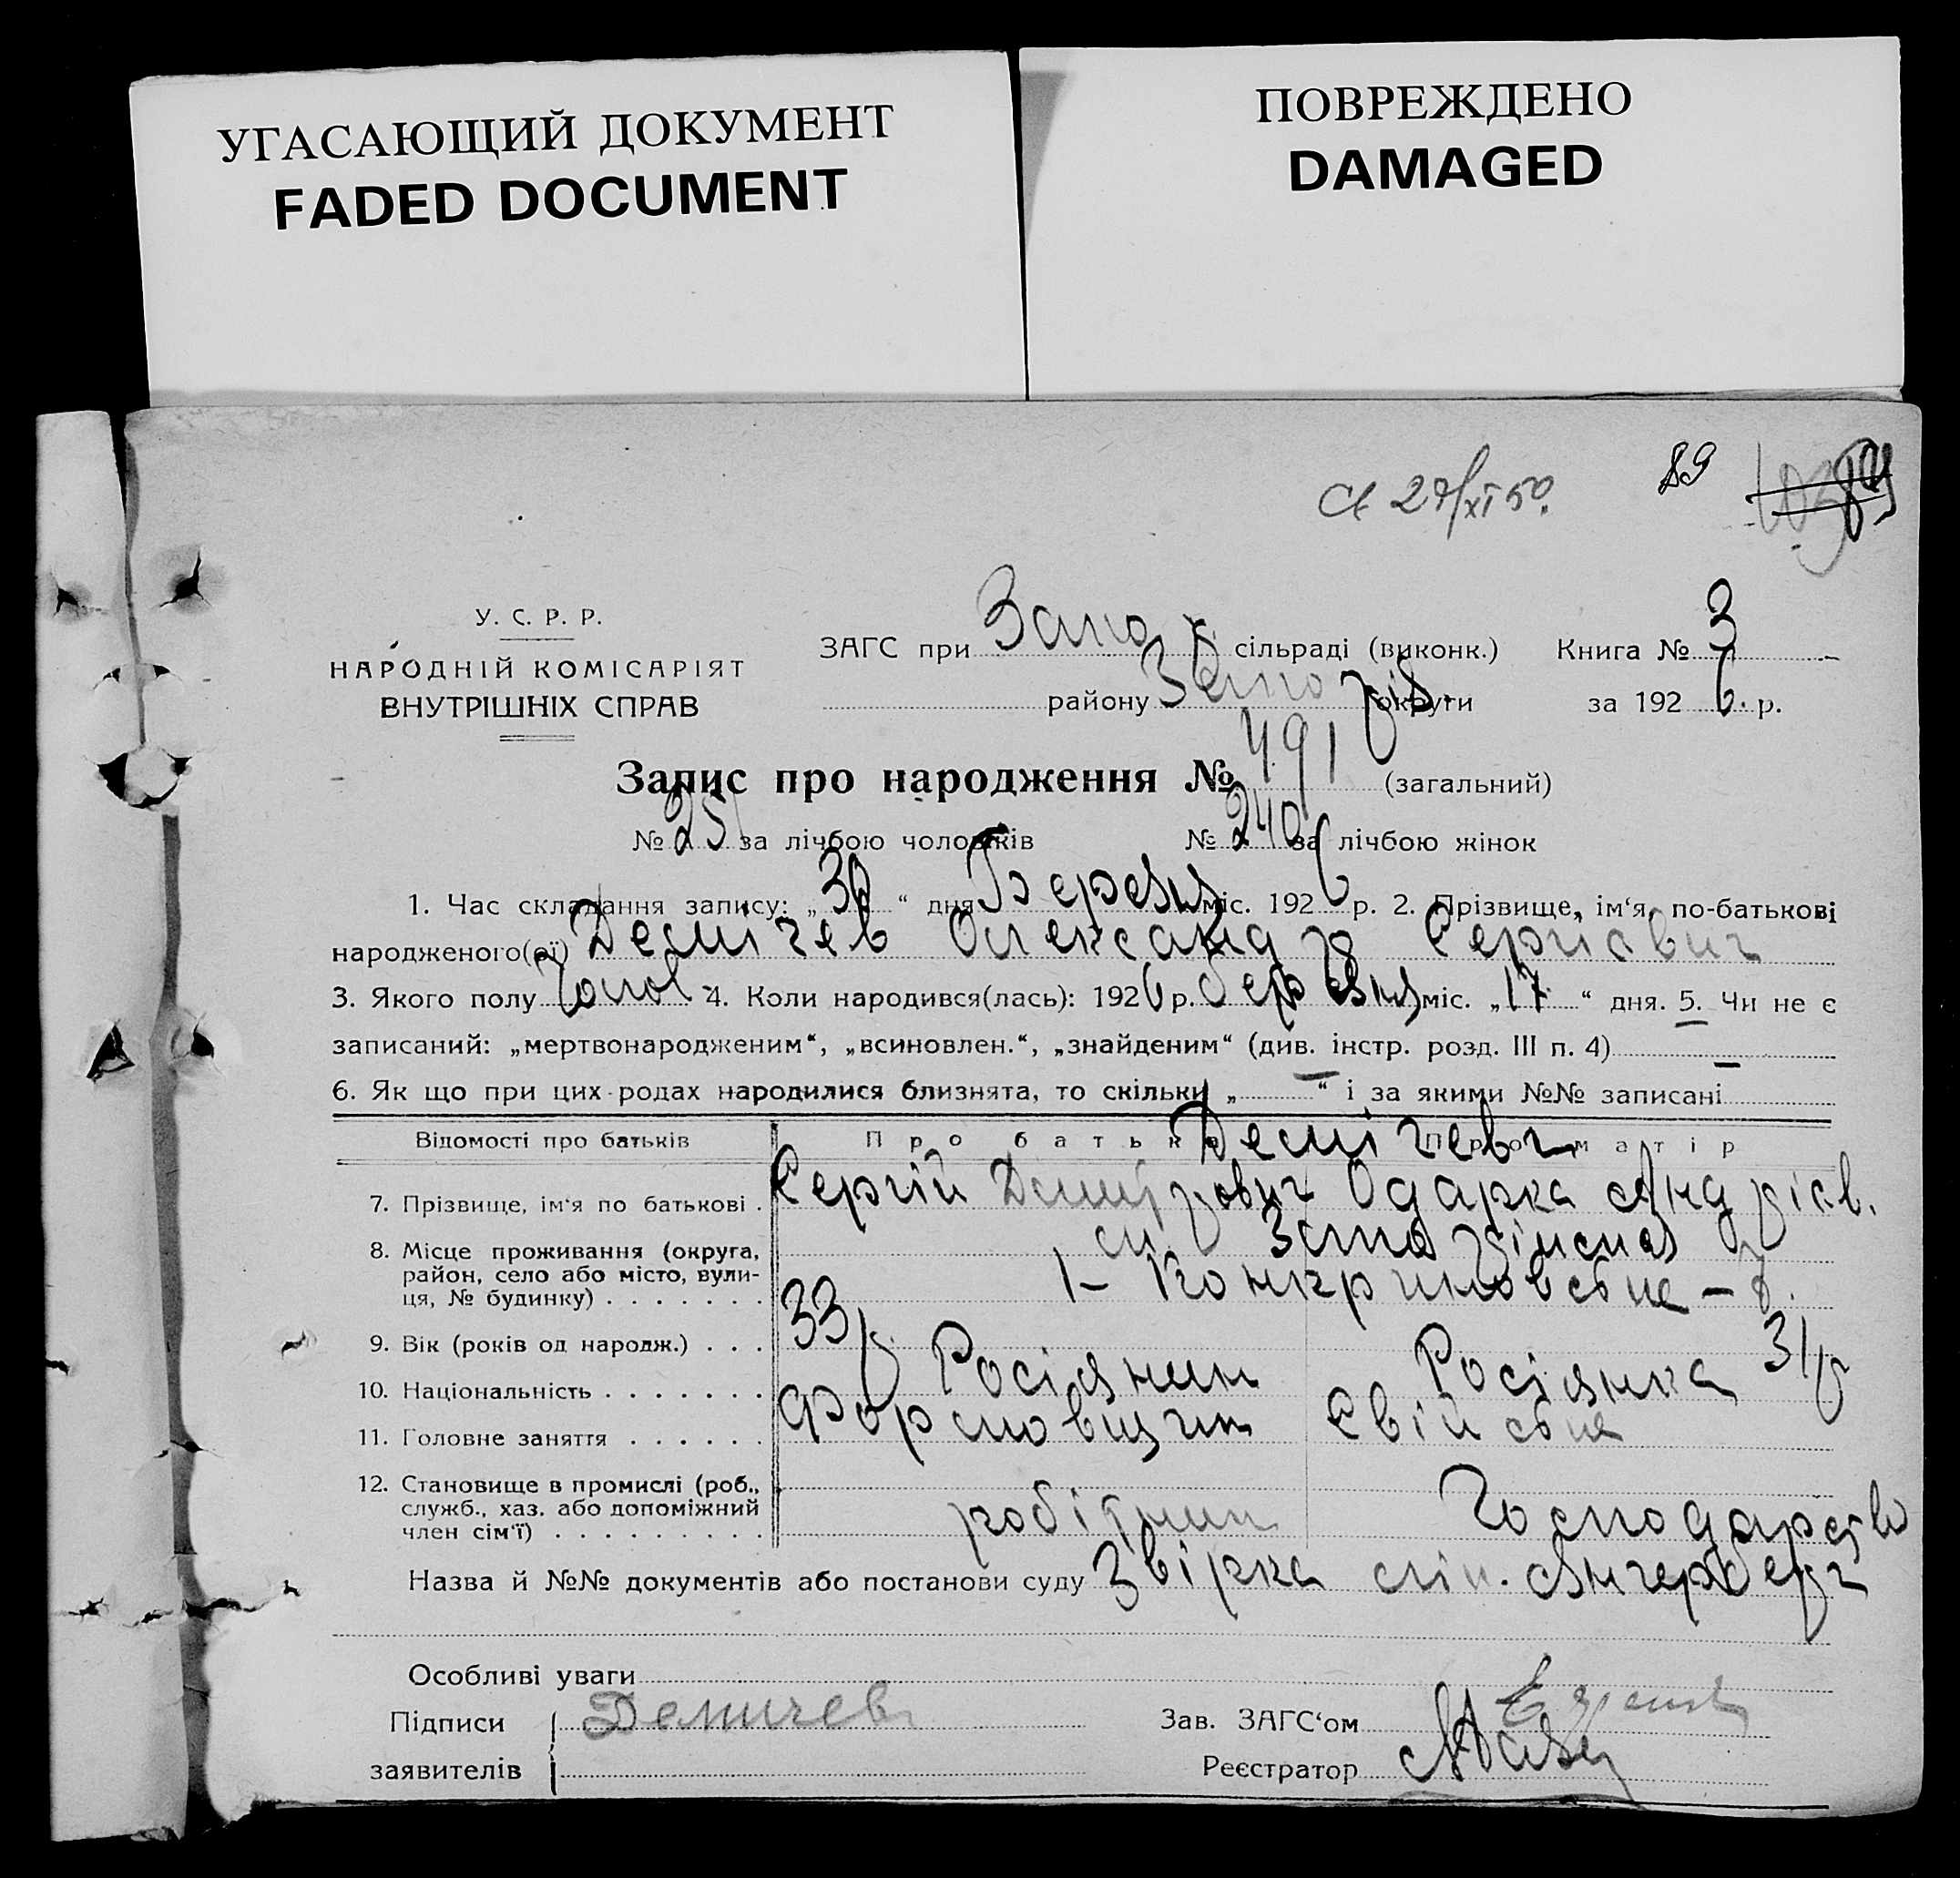 УГАСАЮЩИЙ ДОКУМЕНТ
FADED DOCUMENT
ПОВРЕЖДЕНО
DAMAGED
27/XI 50. 89
У. С. Р. Р.
НАРОДНІЙ КОМІСАРІЯТ
ВНУТРІШНІХ СПРАВ
ЗАГС при Запо сільраді (виконк.) Книга № 3
району Запоріз округи за 1926 р.
Запис про народження № 491 (загальний)
№ 251 за лічбою чоловіків № 240 за лічбою жінок
1. Час складання запису: „30“ дня Березня міс. 1926 р. 2. Прізвище, ім‘я, по-батькові
народженого(ої) Демічев Олександр Сергієвич
3. Якого полу Чолов 4. Коли народився(лась): 1926 р. березня міс. „17“ дня. 5. Чи не є
записаний: „мертвонародженим“, „всиновлен.“, „знайденим“ (див. інстр. розд. III п. 4) —
6. Як що при цих родах народилися близнята, то скільки „—“ і за якими №№ записані
Відомості про батьків Про батька Про матір
Демічеви
7. Прізвище, ім‘я по батькові . Сергій Дмитрович Одарка Андрієв.
8. Місце проживання (округа, район, село або місто, вули-ця, № будинку) . . . . . . . м. Запоріжжя
9. Вік (років од народж.) . . . 33 р 31 р
10. Національність . . . . . . . Росіянин Росіянка
11. Головне заняття . . . . . . Формовщик Свійське
12. Становище в промислі (роб., служб., хаз. або допоміжний член сім‘ї) . . . . . . . . . робітник Господарство
Назва й №№ документів або постанови суду Звірка
Особливі уваги
Підписи Демичев Зав. ЗАГС‘ом
заявителів Реєстратор